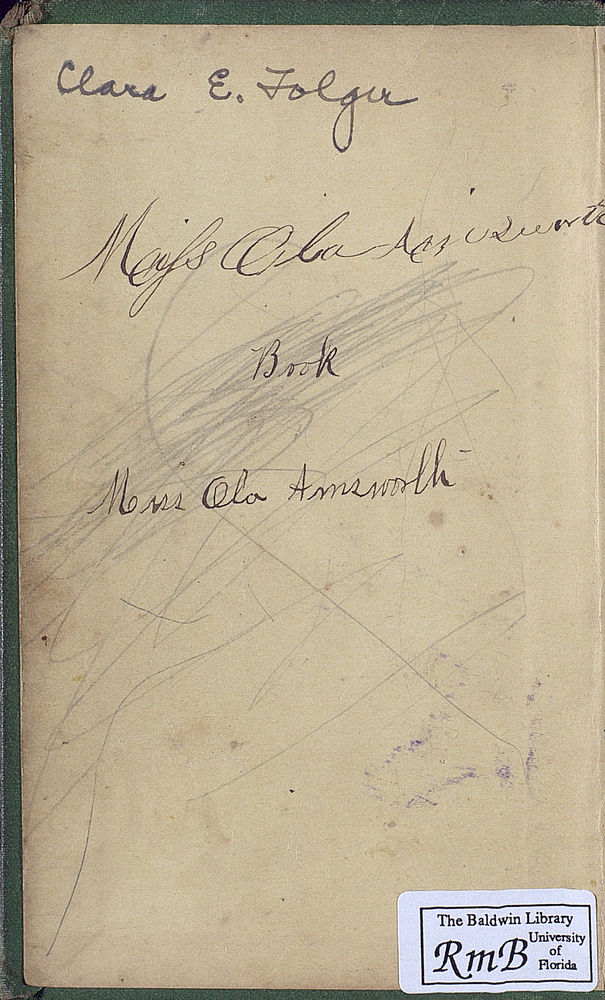 Clara E. Folger
Miss Ola Ainsworth
Book
Miss Ola Ainsworth
The Baldwin Library
RmB University
of
Florida